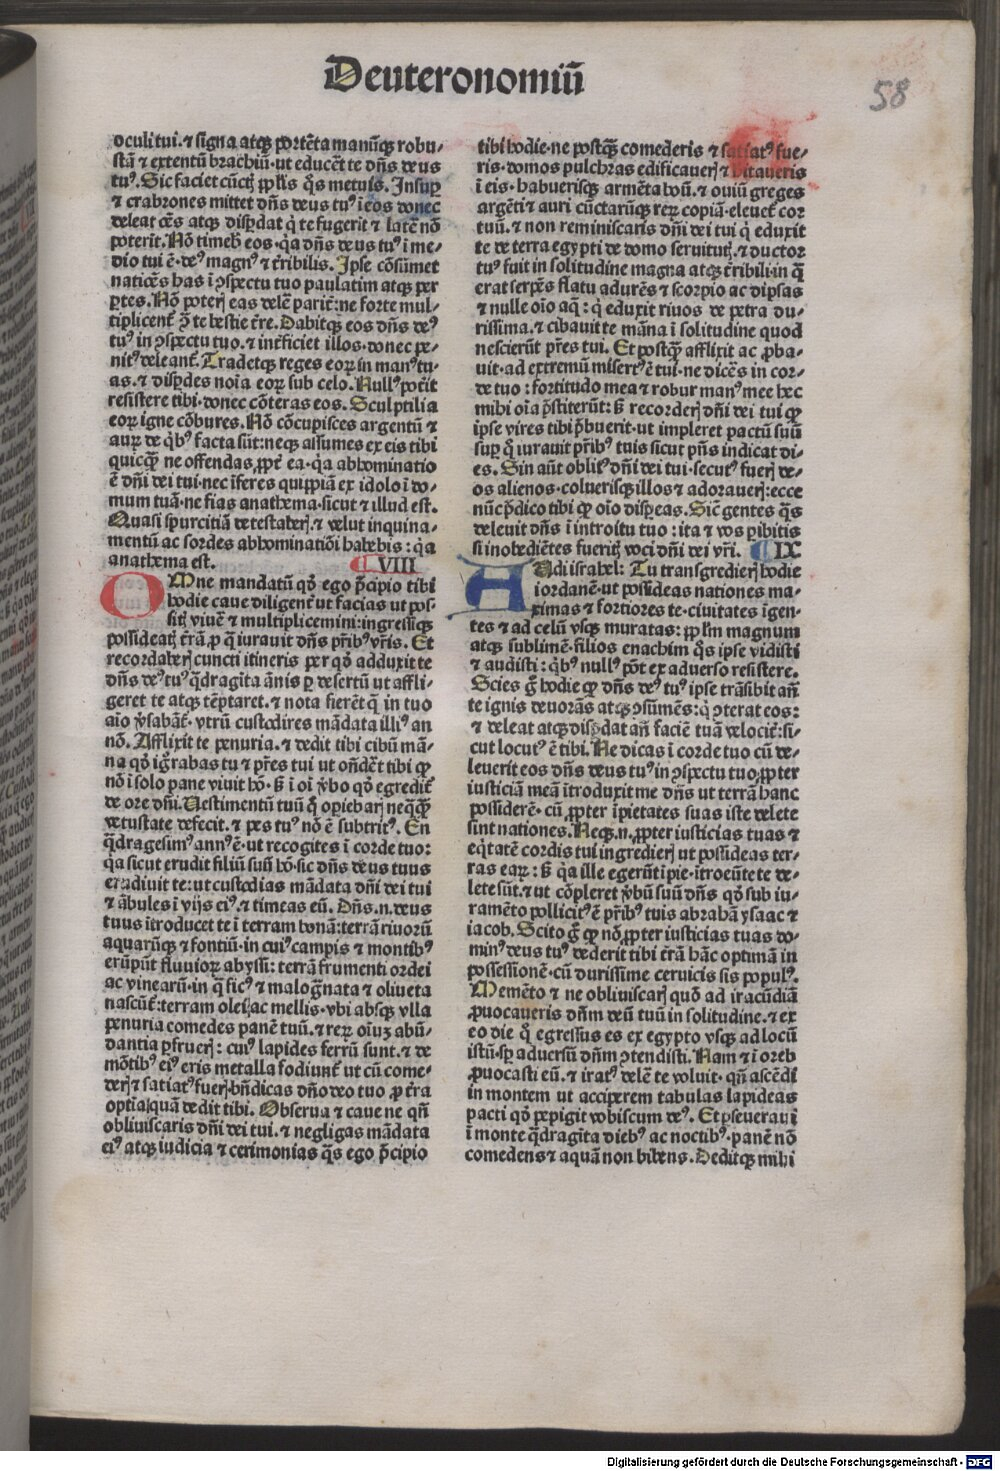 Deuteronomiū
58
oculi tui. ⁊ signa atqꝫ portēta manūqꝫ robu-
stā ⁊ extentū brachiū. ut educēt te dn̄s deus
tuꝰ. Sic faciet cūctis ppl'is q̄s metuis. Insuꝑ
⁊ crabrones mittet dn̄s deus tuꝰ ī eos donec
deleat oēs atqꝫ disꝑdat q̇ te fugerīt ⁊ latē nō
poterīt. Nō timebis eos. q̇a dn̄s deus tuꝰ ī me-
dio tui ē. deꝰ magnꝰ ⁊ t̄ribilis. Ipse cōsūmet
natiōes has ī ↄspectu tuo paulatim atqꝫ per
ꝑtes. Nō poteris eas delē parit̄: ne forte mul-
tiplicent̄ ↄ̄ te bestie t̄re. Dabitqꝫ eos dn̄s deꝰ
tuꝰ in ↄspectu tuo. ⁊ int̄ficiet illos. donec pe-
nitꝰ deleant̄. Tradetqꝫ reges eoꝝ in manꝰ tu-
as. ⁊ disꝑdes noīa eoꝝ sub celo. Nullꝰ pot̄it
resistere tibi. donec cōteras eos. Sculptilia
eoꝝ igne cōbures. Nō cōcupisces argentū ⁊
auꝝ de q̇bꝰ facta sūt: neqꝫ assumes ex eis tibi
quicq̄ꝫ ne offendas, ꝓpt̄ ea. q̇a abhominatio
ē dn̄i dei tui. nec īferes quippiā ex idolo ī do-
mum tuā. ne fias anathema. sicut ⁊ illud est.
Quasi spurcitiā detestaberis. ⁊ velut inquina-
mentū ac sordes abhominatiōi habebis: q̇a
anathema est. VIII
OMne mandatū qđ ego p̄cipio tibi
hodie caue diligent̄ ut facias ut pos-
sitis viuē ⁊ multiplicemini: ingressiqꝫ
possideatis t̄rā ꝓ q̄ iurauit dn̄s pr̄ibꝰ vr̄is. Et
recordaberis cuncti itineris per qđ adduxit te
dn̄s deꝰ tuꝰ q̄dragīta ānis ꝑ desertū ut affli-
geret te atqꝫ tēptaret. ⁊ nota fierēt q̄ in tuo
aīo v̄sabāt̄. vtrū custodires mādata illiꝰ an
nō. Afflixit te penuria. ⁊ dedit tibi cibū mā-
na qđ ig̊rabas tu ⁊ pr̄es tui ut on̄dēt tibi ꝙ
nō ī solo pane viuit hō. sꝫ ī oī v̄bo qđ egredit̄
de ore dn̄i. Uestimentū tuū q̊ opiebaris neq̄q̄ꝫ
vetustate defecit. ⁊ pes tuꝰ nō ē subtritꝰ. En
q̄dragesimꝰ annꝰ ē. ut recogites ī corde tuo:
q̇a sicut erudit filiū suū hō. sic dn̄s deus tuus
erudiuit te: ut custodias mādata dn̄i dei tui
⁊ ābules ī vijs eiꝰ. ⁊ timeas eū. Dn̄s .n. deus
tuus ītroducet te ī terram bonā: terrā riuorū
aquarūqꝫ ⁊ fontiū. in cuiꝰ campis ⁊ montibꝰ
erūpūt fluuioꝝ abyssi: terrā frumenti ordei
ac vinearū. in q̄ ficꝰ ⁊ malog̊nata ⁊ oliueta
nascūt̄: terram olei, ac mellis. vbi absqꝫ vlla
penuria comedes panē tuū. ⁊ reꝝ oīuꝫ abū-
dantia ꝑfrueris: cuiꝰ lapides ferrū sunt. ⁊ de
mōtibꝰ eiꝰ eris metalla fodiunt̄ ut cū come-
deris ⁊ satiatꝰ fueris. bn̄dicas dn̄o deo tuo ꝓ t̄ra
optīa, quā dedit tibi. Obserua ⁊ caue ne qn̄
obliuiscaris dn̄i dei tui. ⁊ negligas mādata
eiꝰ atqꝫ iudicia ⁊ cerimonias q̄s ego p̄cipio
tibi hodie. ne postq̄ꝫ comederis ⁊ satiatꝰ fue-
ris. domos pulchras edificaueris ⁊ hītaueris
ī eis. habuerisqꝫ armēta boū. ⁊ ouiū greges
argēti ⁊ auri cūctarūqꝫ reꝝ copiā. eleuet̄ cor
tuū. ⁊ non reminiscaris dn̄i dei tui q̇ eduxit
te de terra egypti de domo seruitutis. ⁊ ductor
tuꝰ fuit in solitudine magna atqꝫ t̄ribili. in q̄
erat serpēs flatu adurēs ⁊ scorpio ac dipsas
⁊ nulle oīo aq̄: q̇ eduxit riuos de petra du-
rissima. ⁊ cibauit te māna ī solitudine quod
nescierūt pr̄es tui. Et postq̄ꝫ afflixit ac ꝓba-
uit. ad extremū misertꝰ ē tui. ne dicēs in cor-
de tuo: fortitudo mea ⁊ robur manꝰ mee hec
mihi oīa p̄stiterūt: sꝫ recorderis dn̄i dei tui ꝙ
ipse vires tibi p̄buerit. ut impleret pactū suū
suꝑ q̊ iurauit pr̄ibꝰ tuis sicut pn̄s indicat di-
es. Sin aūt oblitꝰ dn̄i dei tui. secutꝰ fueris de-
os alienos. coluerisqꝫ illos ⁊ adoraueris: ecce
nūc p̄dico tibi ꝙ oīo disꝑeas. Sic̄ gentes q̄s
deleuit dn̄s ī introitu tuo: ita ⁊ vos ꝑibitis
si inobediētes fueritis voci dn̄i dei vr̄i. IX
AUdi israhel: Tu transgredieris hodie
iordanē. ut possideas nationes ma-
ximas ⁊ fortiores te. ciuitates īgen-
tes ⁊ ad celū vsqꝫ muratas: ppl'm magnum
atqꝫ sublimē. filios enachim q̄s ipse vidisti
⁊ audisti: q̇bꝰ nullꝰ pōt ex aduerso resistere.
Scies g̊ hodie ꝙ dn̄s deꝰ tuꝰ ipse trāsibit an̄
te ignis deuorās atqꝫ ↄsūmēs: q̇ ↄterat eos:
⁊ deleat atqꝫ disꝑdat an̄ faciē tuā velocit̄: si-
cut locutꝰ ē tibi. Ne dicas ī corde tuo cū de-
leuerit eos dn̄s deus tuꝰ in ↄspectu tuo, ꝓpter
iusticiā meā ītroduxit me dn̄s ut terrā hanc
possiderē. cū, ꝓpter īpietates suas iste delete
sint nationes. Neqꝫ .n. ꝓpter iusticias tuas ⁊
eq̇tatē cordis tui ingredieris ut possideas ter-
ras eaꝝ: sꝫ q̇a ille egerūt īpie. ītroeūte te de-
lete sūt. ⁊ ut cōpleret v̄bū suū dn̄s qđ sub iu-
ramēto pollicitꝰ ē pr̄ibꝰ tuis abrahā ysaac ⁊
iacob. Scito g̊ ꝙ nō, ꝓpter iusticias tuas do-
minꝰ deus tuꝰ dederit tibi t̄rā hāc optimā in
possessionē. cū durissime ceruicis sis populꝰ.
Memēto ⁊ ne obliuiscaris quō ad iracūdiā
ꝓuocaueris dn̄m deū tuū in solitudine. ⁊ ex
eo die q̊ egressus es ex egypto vsqꝫ ad locū
istū. sꝑ aduersū dn̄m ↄtendisti. Nam ⁊ ī oreb
ꝓuocasti eū. ⁊ iratꝰ delē te voluit. qn̄ ascēdi
in montem ut acciperem tabulas lapideas
pacti qđ pepigit vobiscum deꝰ. Et ꝑseueraui
ī monte q̄dragīta diebꝰ ac noctibꝰ. panē nō
comedens ⁊ aquā non bibens. Deditqꝫ mihi
Digitalisierung gefördert durch die Deutsche Forschungsgemeinschaft - DFG